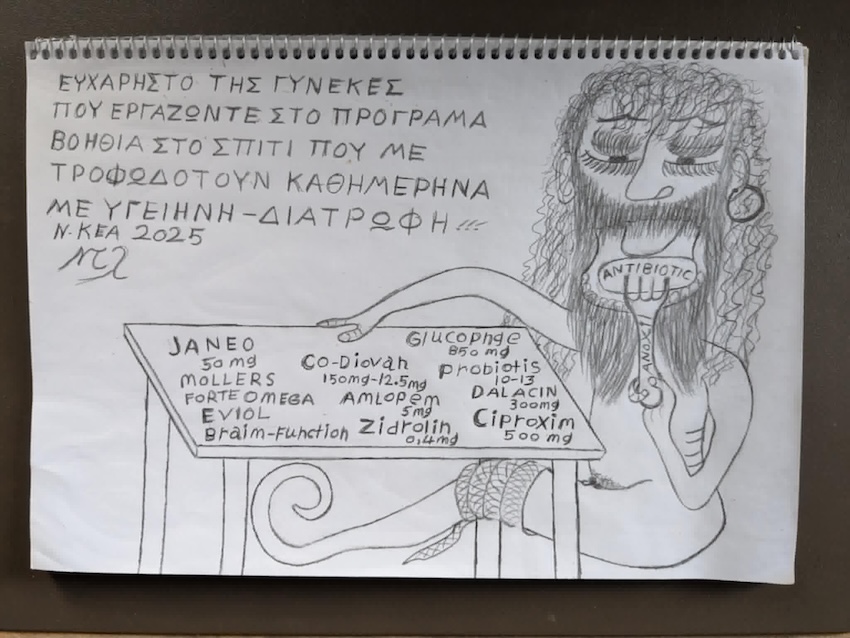 ΕΥΧΑΡΗΣΤΟ ΤΗΣ ΓΥΝΕΚΕΣ
ΠΟΥ ΕΡΓΑΖΩΝΤΕ ΣΤΟ ΠΡΟΓΡΑΜΑ
ΒΟΗΘΙΑ ΣΤΟ ΣΠΙΤΙ ΠΟΥ ΜΕ
ΤΡΟΦΩΔΟΤΟΥΝ ΚΑΘΗΜΕΡΗΝΑ
ΜΕ ΥΓΕΙΗΝΗ-ΔΙΑΤΡΩΦΗ
Ν.ΚΕΑ 2025
ANTIBIOTIC
JANEO
50mg
MOLLERS
FORTE OMEGA
EVIOL
Braim-Function
Co-Diovan
150mg-12.5mg
AMLOPEM
5mg
Zidrolin
0,4mg
Glucophge
850mg
probiotis
10-13
DALACIN
300mg
Ciproxim
500mg